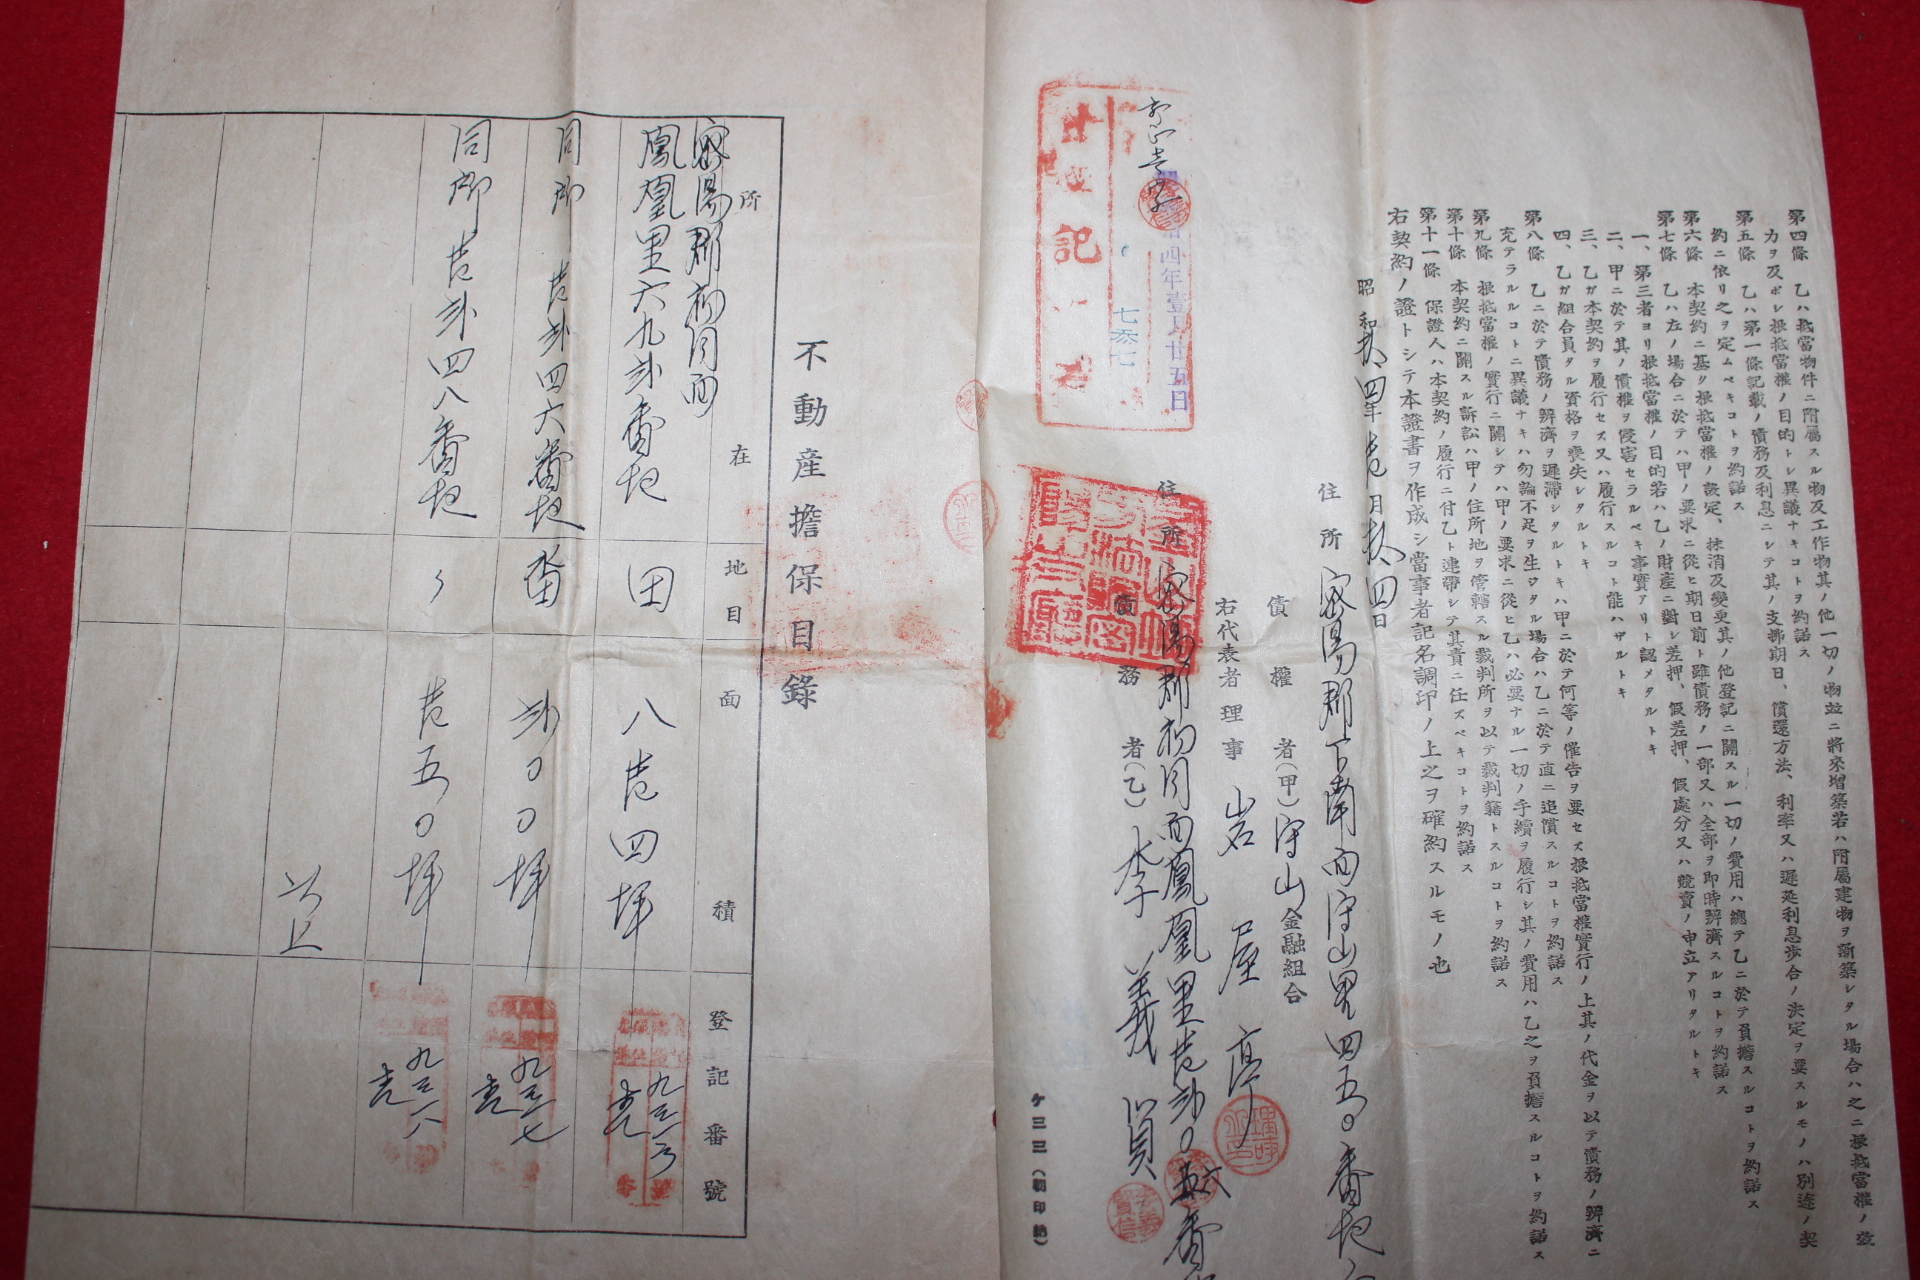 第四條 乙ハ抵當物件ニ附屬スル物及工作物其ノ他一切ノ物竝ニ將來增築若ハ附屬建物ヲ新築シタル場合ハ之ニ根抵當權ノ效
力ヲ及ボシ根抵當權ノ目的トシ異議ナキコトヲ約諾ス
第五條 乙ハ第一條記載ノ債務及利息ニシテ其ノ支拂期日、償還方法、利率又ハ遲延利息步合ノ決定ヲ要スルモノハ別途ノ契
約ニ依リ之ヲ定ムベキコトヲ約諾ス
第六條 本契約ニ基ク根抵當權ノ設定、抹消及變更其ノ他登記ニ關スル一切ノ費用ハ總テ乙ニ於テ負擔スルコトヲ約諾ス
第七條 乙ハ左ノ場合ニ於テハ甲ノ要求ニ從ヒ期日前ト雖債務ノ一部又ハ全部ヲ即時辨濟スルコトヲ約諾ス
一、第三者ヨリ根抵當權ノ目的若ハ乙ノ財產ニ對シ差押、假差押、假處分又ハ競賣ノ申立アリタルトキ
二、甲ニ於テ其ノ債權ヲ侵害セラルベキ事實アリト認メタルトキ
三、乙ガ本契約ヲ履行セズ又ハ履行スルコト能ハザルトキ
四、乙ガ組合員タル資格ヲ喪失シタルトキ
第八條 乙ニ於テ債務ノ辨濟ヲ遲滯シタルトキハ甲ニ於テ何等ノ催告ヲ要セズ根抵當權實行ノ上其ノ代金ヲ以テ債務ノ辨濟ニ
充テラルルコトニ異議ナキハ勿論不足ヲ生ジタル場合ハ乙ニ於テ直ニ追償スルコトヲ約諾ス
第九條 根抵當權ノ實行ニ關シテハ甲ノ要求ニ從ヒ乙ハ必要ナル一切ノ手續ヲ履行シ其ノ費用ハ乙之ヲ負擔スルコトヲ約諾ス
第十條 本契約ニ關スル訴訟ハ甲ノ住所地ヲ管轄スル裁判所ヲ以テ裁判籍トスルコトヲ約諾ス
第十一條 保證人ハ本契約ノ履行ニ付乙ト連帶シテ其責ニ任ズベキコトヲ約諾ス
右契約ノ證トシテ本證書ヲ作成シ當事者記名調印ノ上之ヲ確約スルモノ也
昭和拾四年壱月拾四日
住所 密陽郡下南面守山里四五〇番地
債權者(甲)守山金融組合
右代表者理事 岩屋 亨
住所 密陽郡初同面鳳凰里壱弐〇番
債務者(乙) 李義贇
四年壹月廿五日
七叁七
記
ケ三三(朝印納)
不動產擔保目錄
所在 地目 面積 登記番號
密陽郡初同面
鳳凰里六九弐番地 田 八壱四坪 九三一六
同所 壱弐四六番地 畓 弐〇〇坪 九三一七
同所 壱弐四八番地 〃 壱五〇坪 九三一八
以上